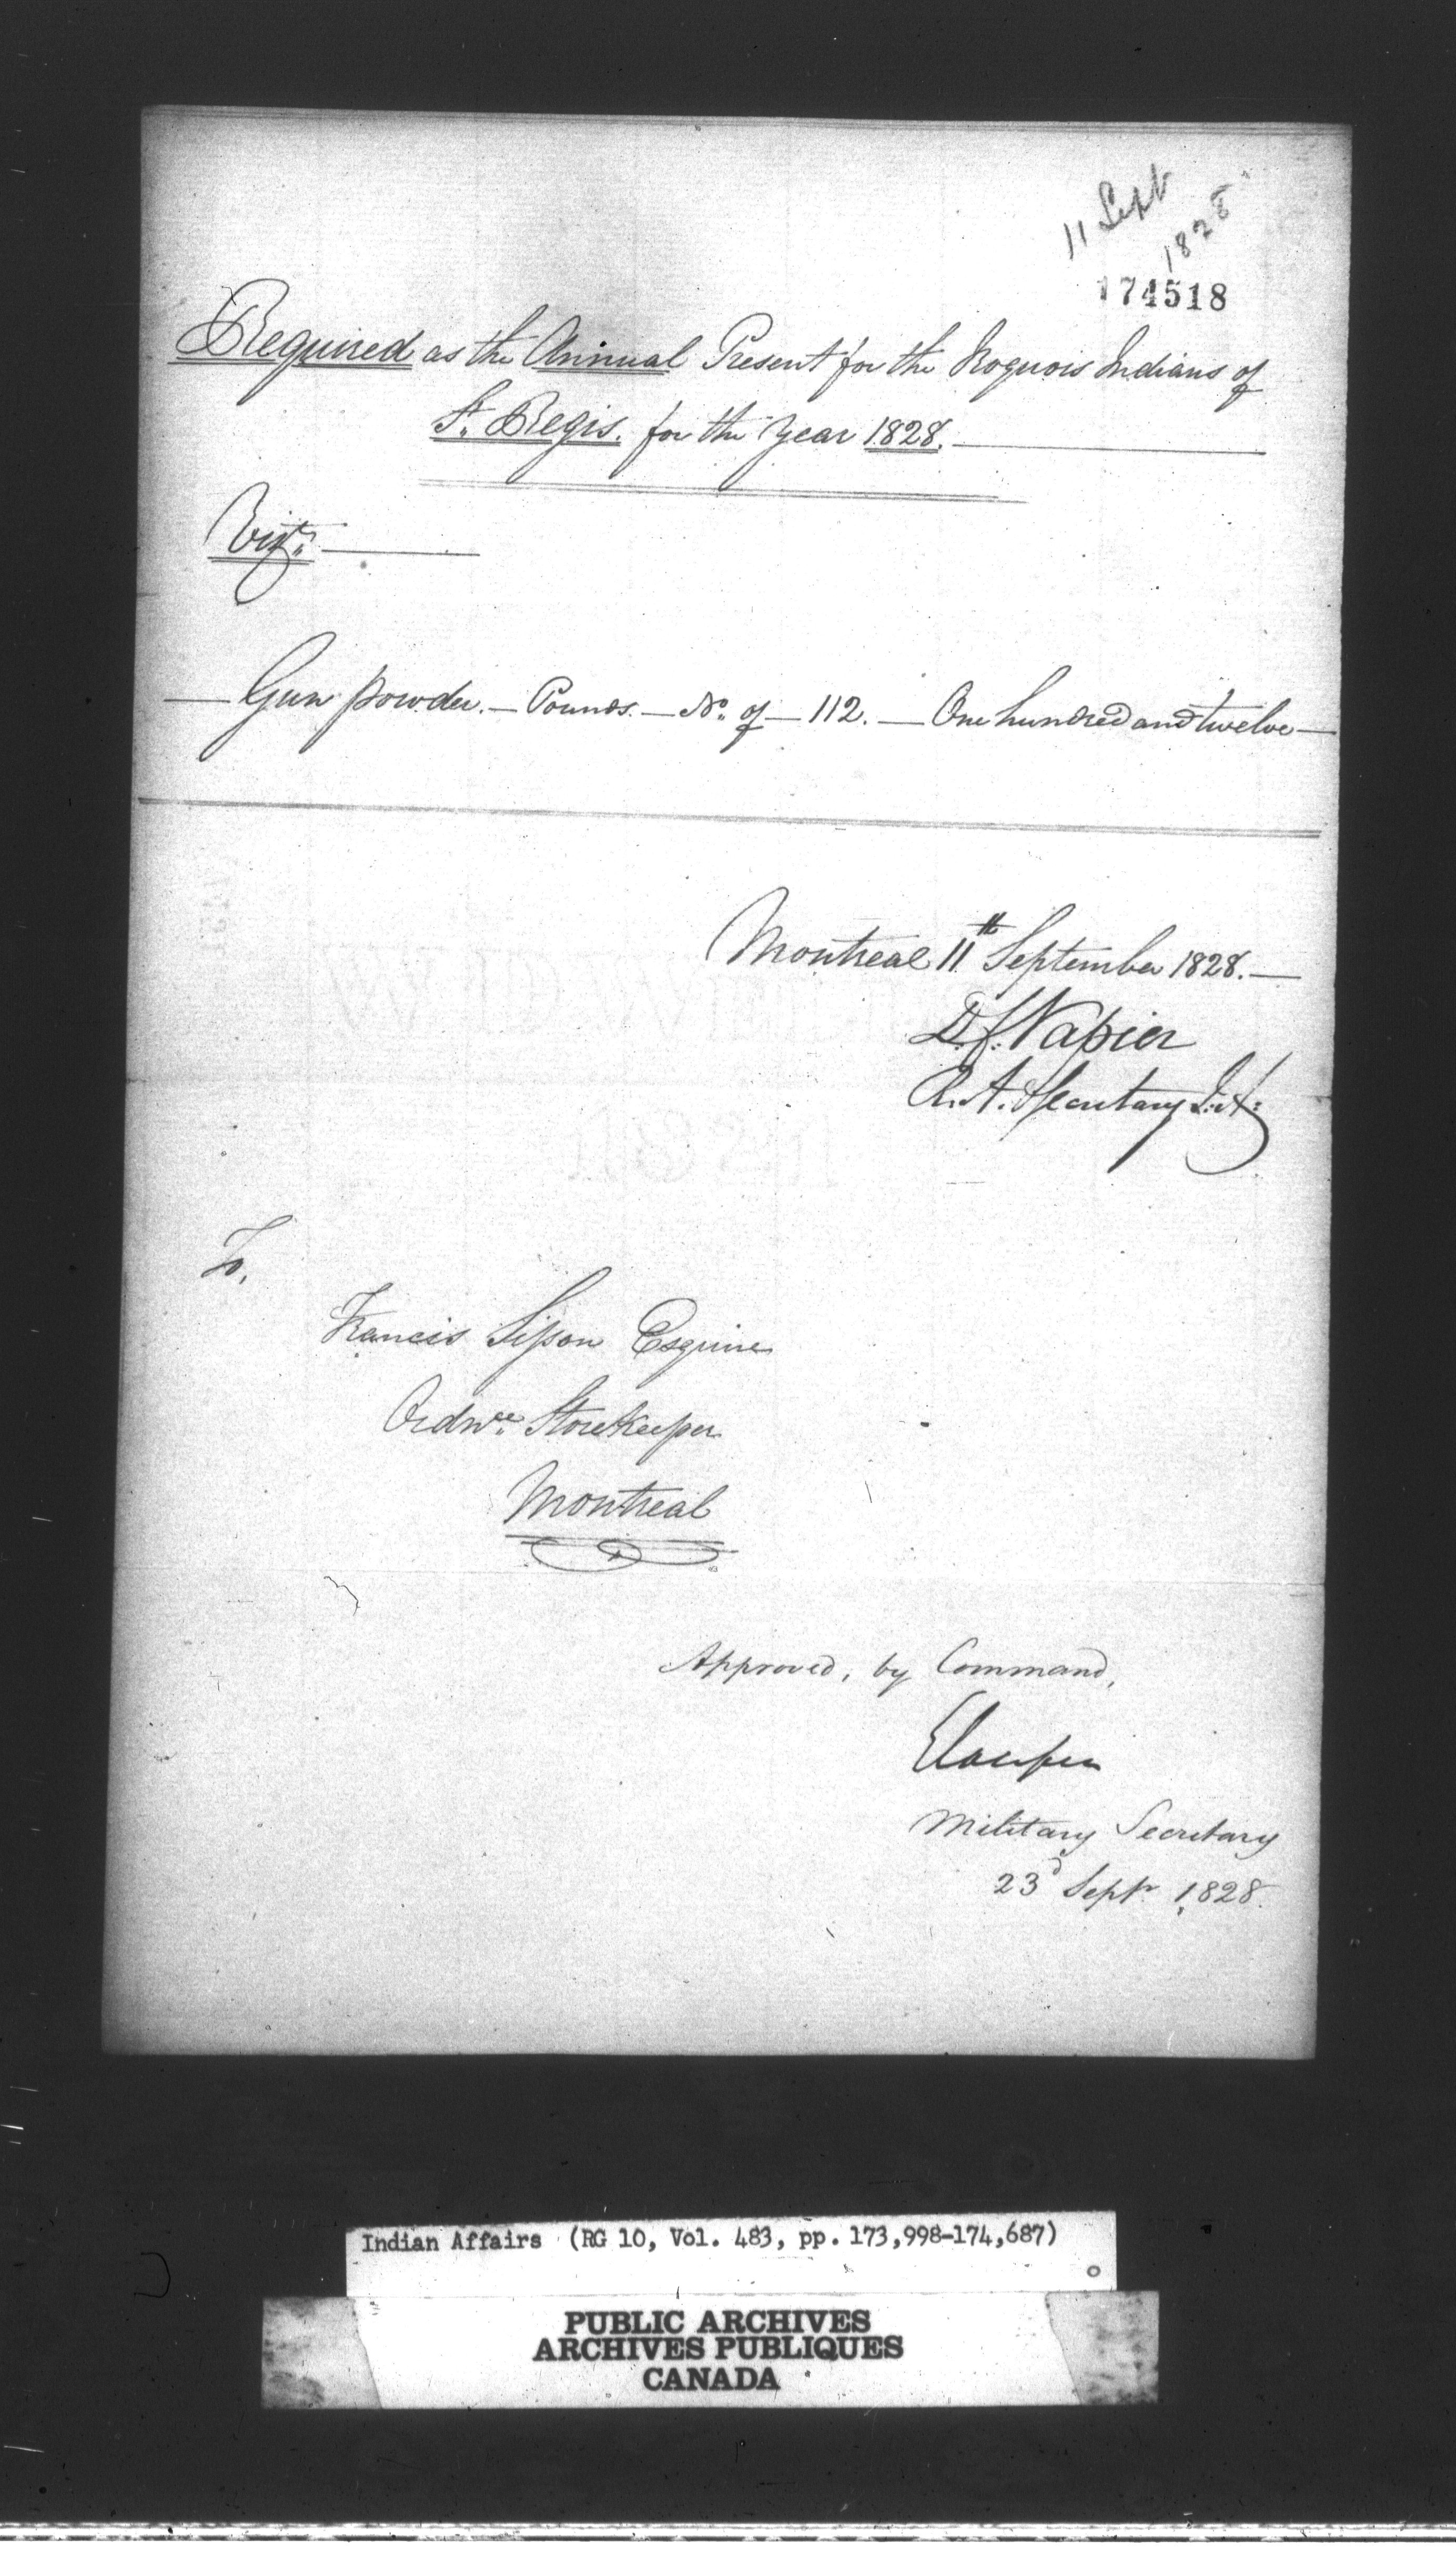 11 Sept
1828
174518
Required as the Annual Present for the Iroquois Indians of
St. Regis. for the Year 1828.
Vizt.
Gun powder. — Pounds. — No. of — 112. — One hundred and twelve —
Montreal 11th September 1828. —
D. C. Napier
R. A. Secretary I. A:
To,
Francis Esquire
Ordnce. Storekeeper
Montreal
Approved, by Command,
Military Secretary
23d Septr 1828.
Indian Affairs (RG 10, Vol. 483, pp. 173,998-174,687)
PUBLIC ARCHIVES
ARCHIVES PUBLIQUES
CANADA